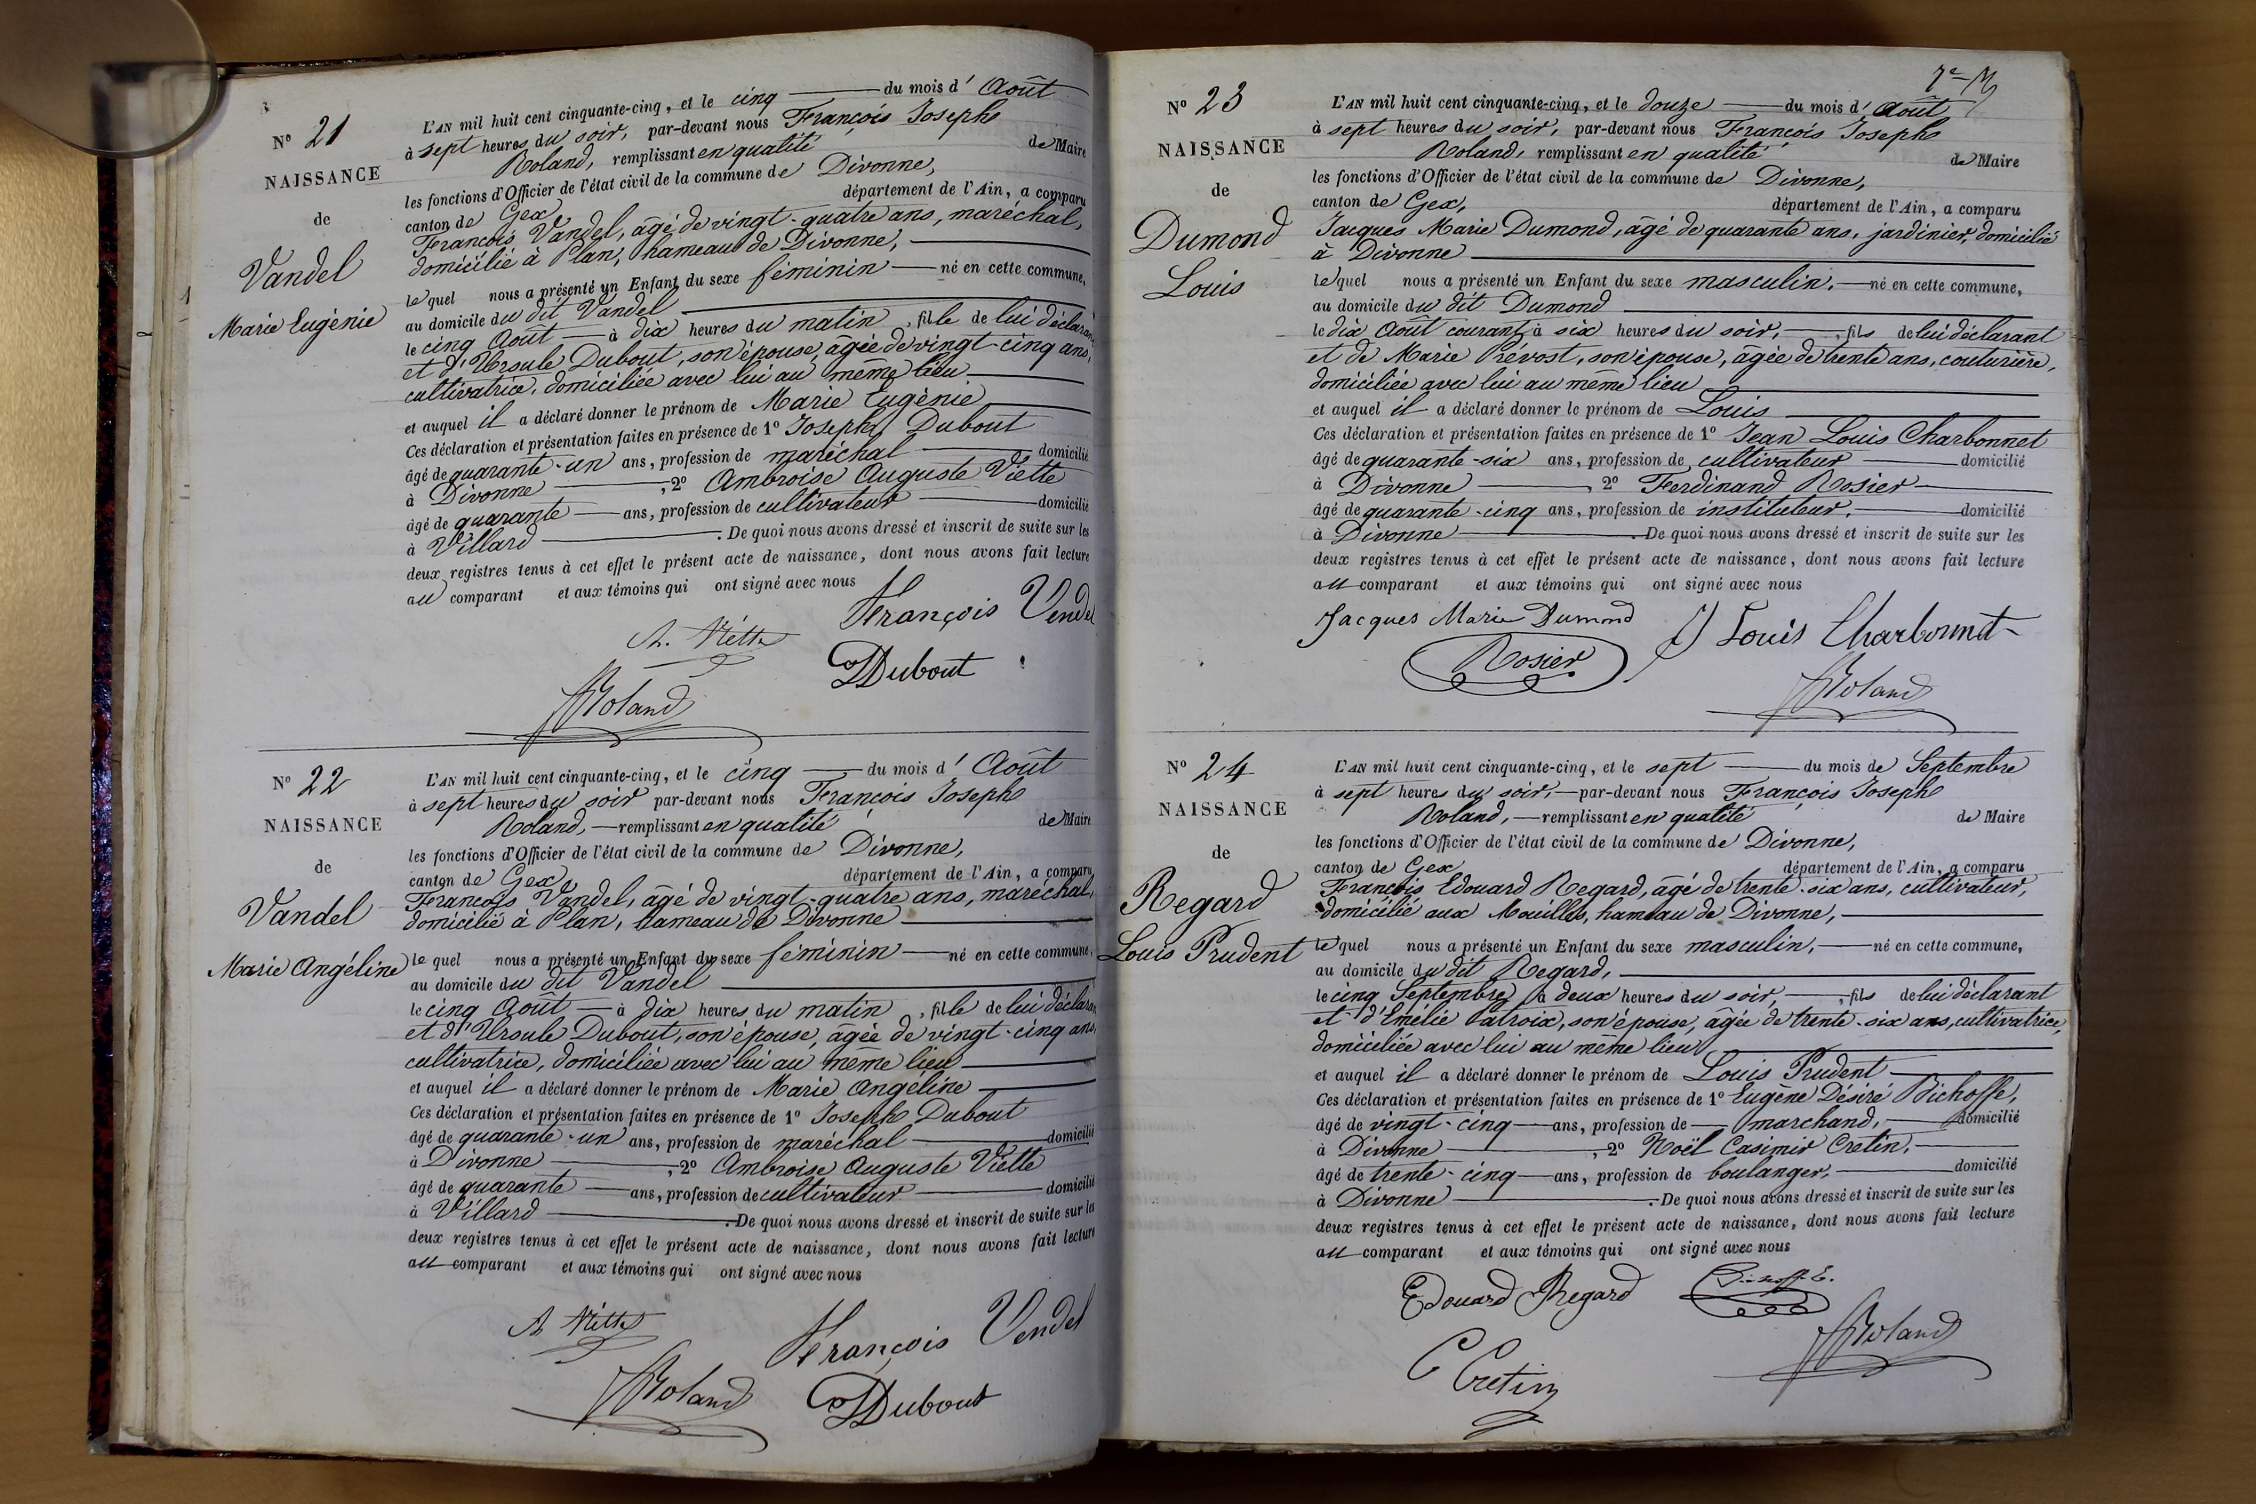 N° 21
NAISSANCE
de
Vandel
Marie Eugénie
L'AN mil huit cent cinquante-cinq, et le cinq du mois d' Août
à sept heures du soir, par-devant nous François Joseph
Roland, remplissant en qualité de Maire
les fonctions d'Officier de l'état civil de la commune de Divonne,
canton de Gex département de l'Ain, a comparu
François Vandel, âgé de vingt-quatre ans, maréchal,
domicilié à Plan, hameau de Divonne,
lequel nous a présenté un Enfant du sexe féminin né en cette commune,
au domicile du dit Vandel
le cinq Août à dix heures du matin, fille de lui déclarant
et d'Ursule Dubout, son épouse, âgée de vingt-cinq ans,
cultivatrice, domiciliée avec lui au même lieu
et auquel il a déclaré donner le prénom de Marie Eugénie
Ces déclaration et présentation faites en présence de 1° Joseph Dubout
âgé de quarante-un ans, profession de maréchal domicilié
à Divonne, 2° Ambroise Auguste Viette
âgé de quarante ans, profession de cultivateur domicilié
à Villard. De quoi nous avons dressé et inscrit de suite sur les
deux registres tenus à cet effet le présent acte de naissance, dont nous avons fait lecture
au comparant et aux témoins qui ont signé avec nous
François Vendel
A. Viette
Dubout
Roland
N° 22
NAISSANCE
de
Vandel
Marie Angéline
L'AN mil huit cent cinquante-cinq, et le cinq du mois d' Août
à sept heures du soir par-devant nous François Joseph
Roland, remplissant en qualité de Maire
les fonctions d'Officier de l'état civil de la commune de Divonne,
canton de Gex département de l'Ain, a comparu
François Vandel, âgé de vingt-quatre ans, maréchal,
domicilié à Plan, hameau de Divonne
lequel nous a présenté un Enfant du sexe féminin né en cette commune,
au domicile du dit Vandel
le cinq Août à dix heures du matin, fille de lui déclarant
et d'Ursule Dubout, son épouse, âgée de vingt-cinq ans,
cultivatrice, domiciliée avec lui au même lieu
et auquel il a déclaré donner le prénom de Marie Angéline
Ces déclaration et présentation faites en présence de 1° Joseph Dubout
âgé de quarante-un ans, profession de maréchal domicilié
à Divonne, 2° Ambroise Auguste Viette
âgé de quarante ans, profession de cultivateur domicilié
à Villard. De quoi nous avons dressé et inscrit de suite sur les
deux registres tenus à cet effet le présent acte de naissance, dont nous avons fait lecture
au comparant et aux témoins qui ont signé avec nous
A Viette
François Vendel
Roland
Dubout
N° 23
NAISSANCE
de
Dumond
Louis
L'AN mil huit cent cinquante-cinq, et le douze du mois d' Août
à sept heures du soir, par-devant nous François Joseph
Roland, remplissant en qualité de Maire
les fonctions d'Officier de l'état civil de la commune de Divonne,
canton de Gex, département de l'Ain, a comparu
Jacques Marie Dumond, âgé de quarante ans, jardinier, domicilié
à Divonne
lequel nous a présenté un Enfant du sexe masculin, né en cette commune,
au domicile du dit Dumond
le dix Août courant, à six heures du soir, fils de lui déclarant
et de Marie Prévost, son épouse, âgée de trente ans, couturière,
domiciliée avec lui au même lieu
et auquel il a déclaré donner le prénom de Louis
Ces déclaration et présentation faites en présence de 1° Jean Louis Charbonnet
âgé de quarante-six ans, profession de cultivateur domicilié
à Divonne, 2° Ferdinand Rosier
âgé de quarante-cinq ans, profession de instituteur, domicilié
à Divonne. De quoi nous avons dressé et inscrit de suite sur les
deux registres tenus à cet effet le présent acte de naissance, dont nous avons fait lecture
au comparant et aux témoins qui ont signé avec nous
Jacques Marie Dumond
J Louis Charbonnet
Rosier
Roland
N° 24
NAISSANCE
de
Regard
Louis Prudent
L'AN mil huit cent cinquante-cinq, et le sept du mois de Septembre
à sept heures du soir, par-devant nous François Joseph
Roland, remplissant en qualité de Maire
les fonctions d'Officier de l'état civil de la commune de Divonne,
canton de Gex département de l'Ain, a comparu
François Edouard Regard, âgé de trente-six ans, cultivateur,
domicilié aux Mouilles, hameau de Divonne,
lequel nous a présenté un Enfant du sexe masculin, né en cette commune,
au domicile du dit Regard,
le cinq Septembre à deux heures du soir, fils de lui déclarant
et d'Emélie Patroix, son épouse, âgée de trente-six ans, cultivatrice,
domiciliée avec lui au même lieu
et auquel il a déclaré donner le prénom de Louis Prudent
Ces déclaration et présentation faites en présence de 1° Eugène Désiré Bichoffe,
âgé de vingt-cinq ans, profession de marchand, domicilié
à Divonne, 2° Noël Casimir Cretin,
âgé de trente-cinq ans, profession de boulanger, domicilié
à Divonne. De quoi nous avons dressé et inscrit de suite sur les
deux registres tenus à cet effet le présent acte de naissance, dont nous avons fait lecture
au comparant et aux témoins qui ont signé avec nous
Edouard Regard
Roland
C Cretin